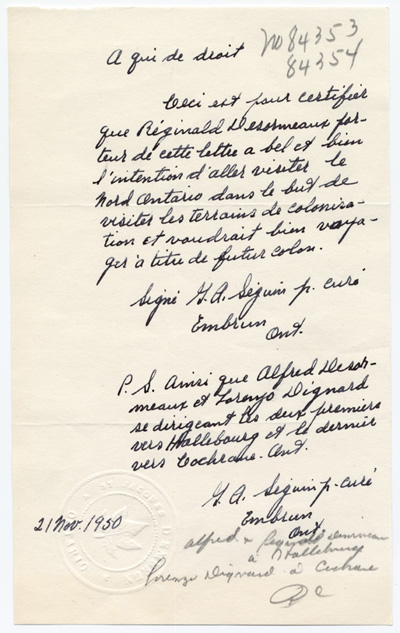 A qui de droit
No 84353
84354
Ceci est pour certifier
que Réginald Desormeaux por-
teur de cette lettre a bel et bien
l'intention d'aller visiter le
Nord Ontario dans le but de
visiter les terrains de colonisa-
tion et voudrait bien voya-
ger à titre de futur colon.
Signé J. A. Séguin p. curé
Embrun
Ont.
P. S. Ainsi que Alfred Desor-
meaux et Lorenzo Dignard
se dirigeant les deux premiers
vers Hallebourg et le dernier
vers Cochrane. Ont.
J. A. Séguin p. curé
Embrun
Ont
21 Nov. 1950
Alfred & Reginald Desormeaux
à Hallebourg
Lorenzo Dignard à Cochrane